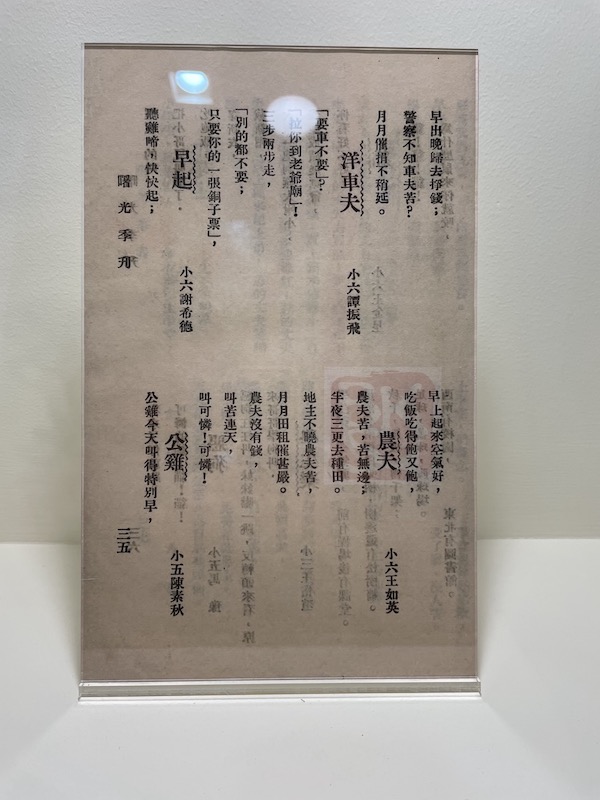 早出晚歸去掙錢；
警察不知車夫苦？
月月催捐不稍延。
洋車夫
小六譚振飛
「要車不要」？
「拉你到老爺廟」！
三步兩步走，
「別的都不要；
只要你的一張銅子票」，
早起
小六謝希德
聽雞啼，快快起；
早上起來空氣好，
吃飯吃得飽又飽，
農夫
小六王如英
農夫苦，苦無邊；
半夜三更去種田。
地主不曉農夫苦，
月月田租催甚嚴。
農夫沒有錢，
叫苦連天，
叫可憐！可憐！
公雞
小五陳素秋
公雞今天叫得特別早，
曙光季刊
三五